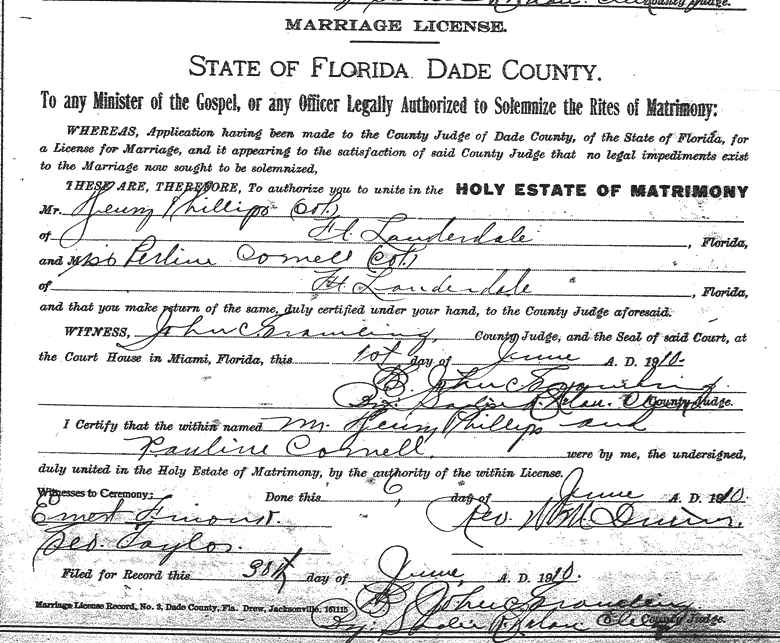 County Judge.
MARRIAGE LICENSE.
STATE OF FLORIDA DADE COUNTY.
To any Minister of the Gospel, or any Officer Legally Authorized to Solemnize the Rites of Matrimony:
WHEREAS, Application having been made to the County Judge of Dade County, of the State of Florida, for
a License for Marriage, and it appearing to the satisfaction of said County Judge that no legal impediments exist
to the Marriage now sought to be solemnized,
THESE ARE, THEREFORE, To authorize you to unite in the HOLY ESTATE OF MATRIMONY
Mr. Henry Phillips (Col.)
of Ft. Lauderdale, Florida,
and Miss Perline Cornell (Col.)
of Ft Lauderdale " , Florida,
and that you make return of the same, duly certified under your hand, to the County Judge aforesaid.
WITNESS, John C. Gramling, County Judge, and the Seal of said Court, at
the Court House in Miami, Florida, this 1st day of June A. D. 1910.
John C. Gramling
By: County Judge.
I Certify that the within named Mr. Henry Phillips and
Pauline Cornell, were by me, the undersigned,
duly united in the Holy Estate of Matrimony, by the authority of the within License.
Witnesses to Ceremony: Done this 6, day of June A. D. 1910.
Ernest Rev. W.M.
Geo. Taylor.
Filed for Record this day of June, A. D. 1910.
John C. Gramling
Marriage License Record, No. 3, Dade County, Fla. Drew, Jacksonville. 151115 By: County Judge